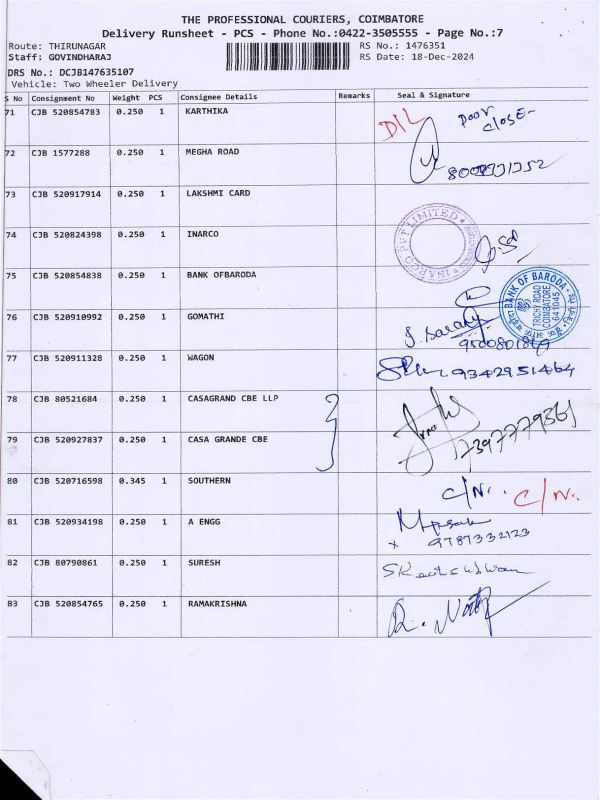 THE PROFESSIONAL COURIERS, COIMBATORE
Delivery Runsheet - PCS - Phone No.:0422-3505555 - Page No.:7
Route: THIRUNAGAR RS No.: 1476351
Staff: GOVINDHARAJ RS Date: 18-Dec-2024
DRS No.: DCJB147635107
Vehicle: Two Wheeler Delivery
S No Consignment No Weight PCS Consignee Details Remarks Seal & Signature
71 CJB 520854783 0.250 1 KARTHIKA D/L Door close-
72 CJB 1577288 0.250 1 MEGHA ROAD
73 CJB 520917914 0.250 1 LAKSHMI CARD
74 CJB 520824398 0.250 1 INARCO INARCO PVT LIMITED
75 CJB 520854838 0.250 1 BANK OFBARODA BANK OF BARODA TRICHY ROAD COIMBATORE 641045
76 CJB 520910992 0.250 1 GOMATHI
77 CJB 520911328 0.250 1 WAGON 9342951464
78 CJB 80521684 0.250 1 CASAGRAND CBE LLP
79 CJB 520927837 0.250 1 CASA GRANDE CBE 7397779361
80 CJB 520716598 0.345 1 SOUTHERN C/N. C/N.
81 CJB 520934198 0.250 1 A ENGG x 9787332123
82 CJB 80790861 0.250 1 SURESH
83 CJB 520854765 0.250 1 RAMAKRISHNA